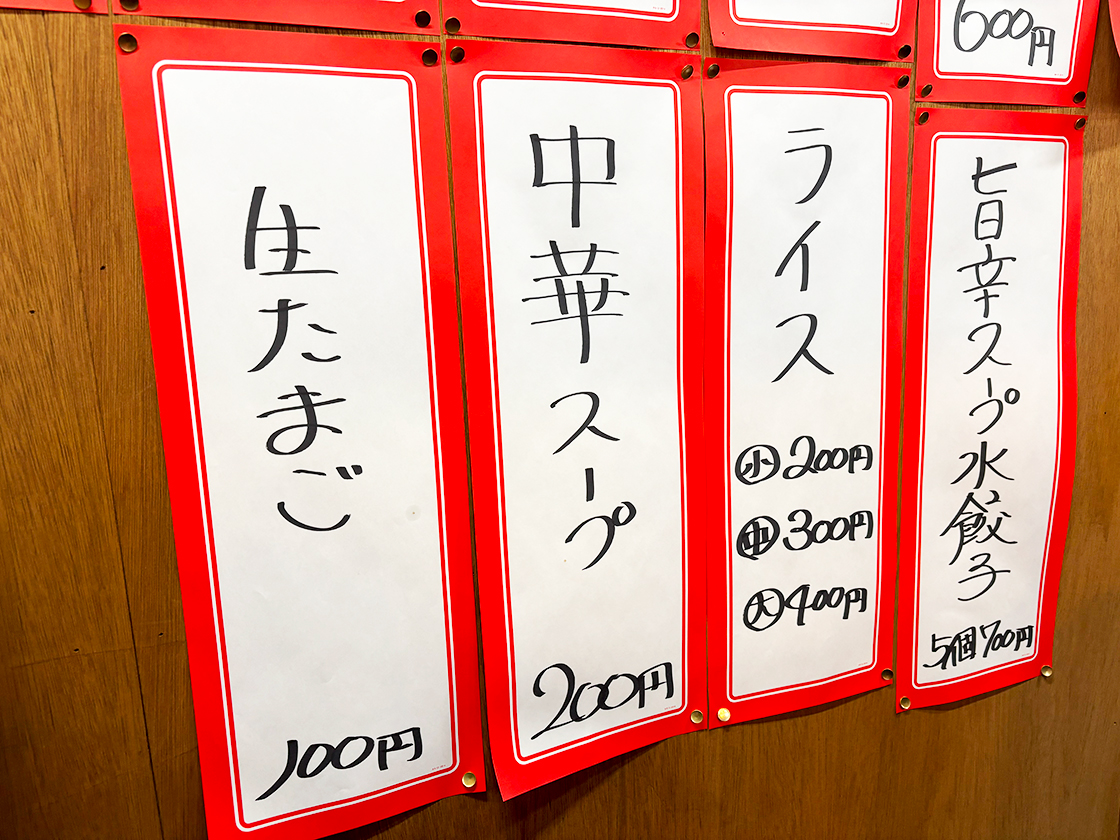 600円
旨辛スープ水餃子
5個700円
ライス
小200円
中300円
大400円
中華スープ
200円
生たまご
100円